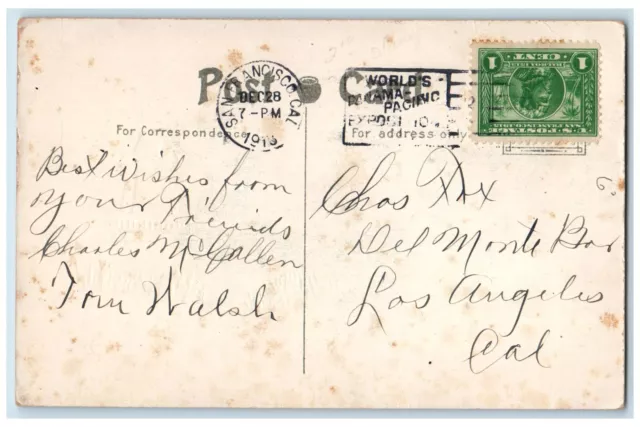 Post Card
SAN FRANCISCO, CAL.
DEC 28
7-PM
1913
WORLD'S
PANAMA-
PACIFIC
EXPOSITION
1 CENT 1
U.S. POSTAGE
For Correspondence
For address only
Best wishes from
your Friends
Charles McCallen
Tom Walsh
Chas Fox
Del Monte Bar
Los Angeles
Cal